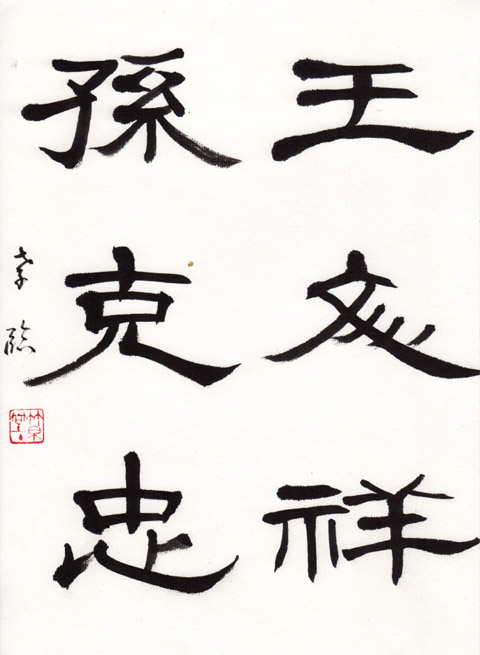 王彣祥
孫克忠